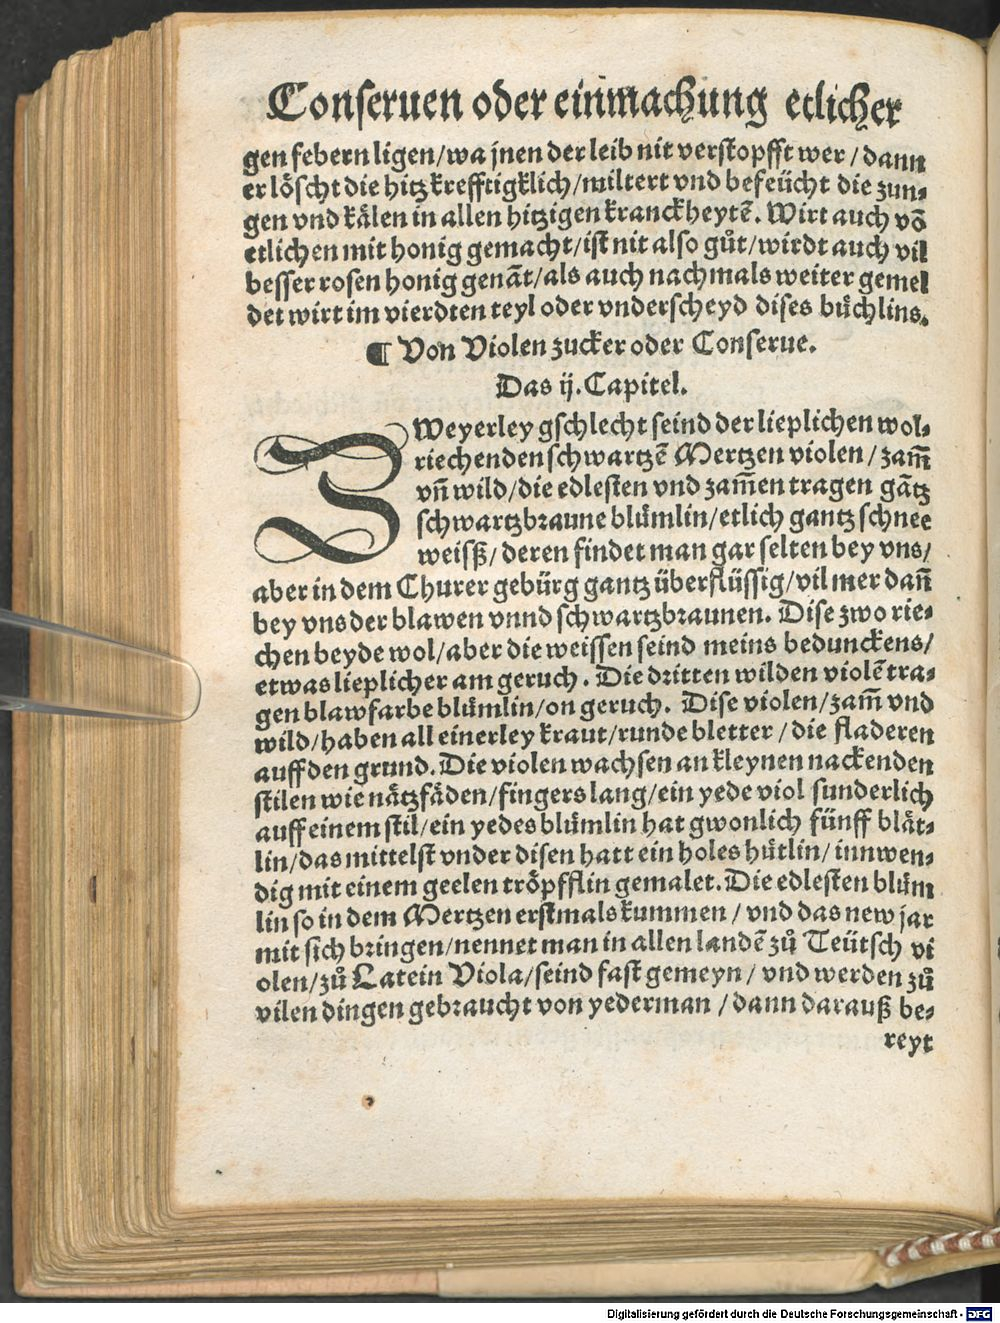 Conseruen oder einmachung etlicher
gen febern ligen/wa jnen der leib nit verstopfft wer / dann
er löscht die hitz krefftigklich/miltert vnd befeücht die zun⸗
gen vnd kälen in allen hitzigen kranckheytẽ. Wirt auch võ
etlichen mit honig gemacht/ist nit also gůt/wirdt auch vil
besser rosen honig genãt/als auch nachmals weiter gemel
det wirt im vierdten teyl oder vnderscheyd dises bůchlins.
¶ Von Violen zucker oder Conserue.
Das ij. Capitel.
ZWeyerley gschlecht seind der lieplichen wol⸗
riechenden schwartzẽ Mertzen violen / zam̃
vñ wild/die edlesten vnd zam̃en tragen gãtz
schwartzbraune blůmlin/etlich gantz schnee
weisß/ deren findet man gar selten bey vns/
aber in dem Churer gebürg gantz überflüssig/vil mer dañ
bey vns der blawen vnnd schwartzbraunen. Dise zwo rie⸗
chen beyde wol/aber die weissen seind meins bedunckens/
etwas lieplicher am geruch. Die dritten wilden violẽ tra⸗
gen blawfarbe blůmlin/on geruch. Dise violen/zam̃ vnd
wild/haben all einerley kraut/runde bletter / die fladeren
auff den grund. Die violen wachsen an kleynen nackenden
stilen wie nätzfäden/fingers lang/ein yede viol sunderlich
auff einem stil/ein yedes blůmlin hat gwonlich fünff blät⸗
lin/das mittelst vnder disen hatt ein holes hůtlin/ innwen⸗
dig mit einem geelen tröpfflin gemalet. Die edlesten blům
lin so in dem Mertzen erstmals kummen / vnd das new jar
mit sich bringen/nennet man in allen landẽ zů Teütsch vi
olen/zů Latein Viola/seind fast gemeyn / vnd werden zů
vilen dingen gebraucht von yederman / dann darauß be⸗
reyt
Digitalisierung gefördert durch die Deutsche Forschungsgemeinschaft - DFG